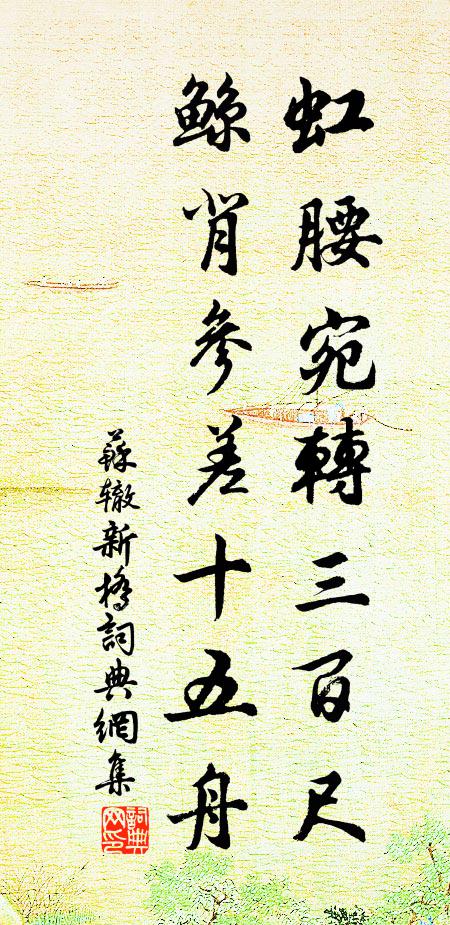 虹腰宛轉三百尺
鲸背參差十五舟
蘇辙新橋詞典網集
詞典网印